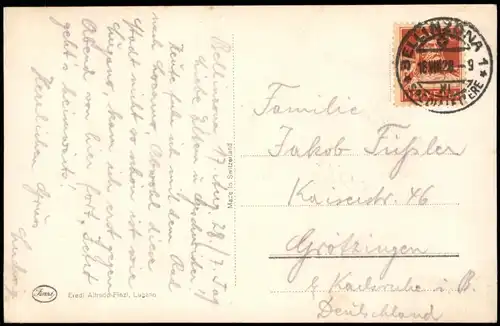 Bellinzona 17. Aug. 28 / 7. Tag
Liebe Eltern u. Geschwister!
Heute fuhr ich mit dem Rad
nach Locarno. Obwohl diese
Stadt nicht so schön ist wie
Lugano, kam ich erst gegen
Abend von hier fort. Jetzt
geht's heimwärts.
Herzlichen Gruss
Ludwig
Eredi Alfredo Finzi, Lugano
Made in Switzerland
BELLINZONA 1
18.VIII.28.-9
Familie
Jakob Füßler
Kaiserstr. 46
Grötzingen
b/ Karlsruhe i. B.
Deutschland